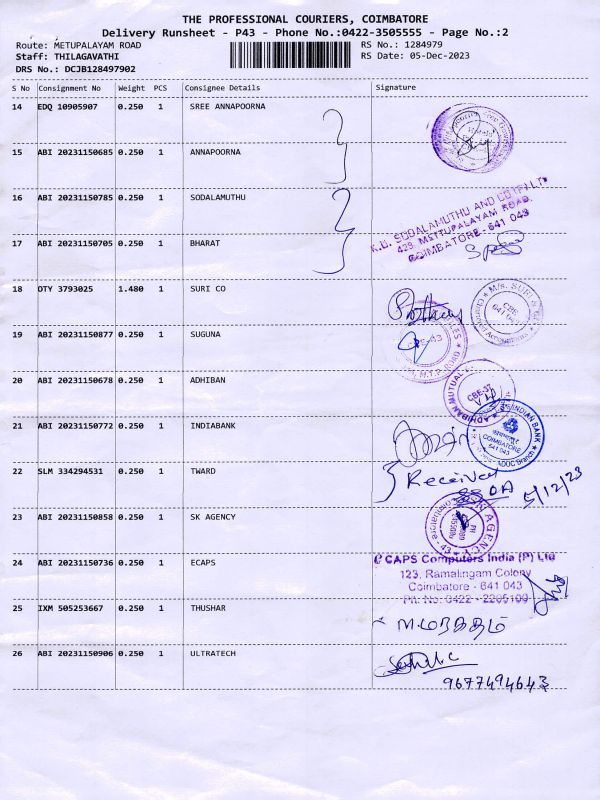 THE PROFESSIONAL COURIERS, COIMBATORE
Delivery Runsheet - P43 - Phone No.:0422-3505555 - Page No.:2
Route: METUPALAYAM ROAD RS No.: 1284979
Staff: THILAGAVATHI RS Date: 05-Dec-2023
DRS No.: DCJB128497902
S No Consignment No Weight PCS Consignee Details Signature
14 EDQ 10905907 0.250 1 SREE ANNAPOORNA
15 ABI 20231150685 0.250 1 ANNAPOORNA
16 ABI 20231150785 0.250 1 SODALAMUTHU
K.U. SODALAMUTHU AND CO (P) LTD
423, METTUPALAYAM ROAD,
COIMBATORE - 641 043
17 ABI 20231150705 0.250 1 BHARAT
18 OTY 3793025 1.480 1 SURI CO
M/s. SURI & Co
CBE
641 043
Chartered Accountants
19 ABI 20231150877 0.250 1 SUGUNA
CBE-43
M.T.P. ROAD
20 ABI 20231150678 0.250 1 ADHIBAN
ADHIBAN MUTUAL
CBE-37
21 ABI 20231150772 0.250 1 INDIABANK
INDIAN BANK
COIMBATORE
641 043
Branch
22 SLM 334294531 0.250 1 TWARD
Received
5/12/23
23 ABI 20231150858 0.250 1 SK AGENCY
AGENCY
24 ABI 20231150736 0.250 1 ECAPS
CAPS Computers India (P) Ltd
123, Ramalingam Colony
Coimbatore - 641 043
Ph. No: 0422 - 2205109
25 IXM 505253667 0.250 1 THUSHAR
மரகதம்
26 ABI 20231150906 0.250 1 ULTRATECH
9677494643